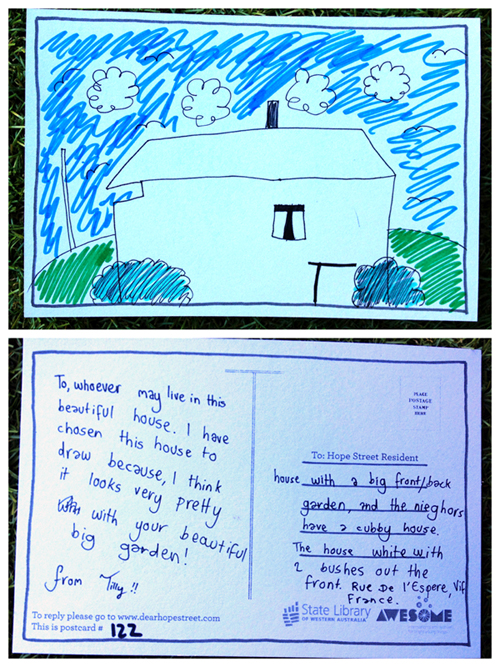 To, whoever may live in this
beautiful house. I have
chosen this house to
draw because, I think
it looks very pretty
with your beautiful
big garden!
from Tilly!!
To reply please go to www.dearhopestreet.com
This is postcard # 122
PLACE
POSTAGE
STAMP
HERE
To: Hope Street Resident
house with a big front/back
garden, and the nieghors
have a cubby house.
The house white with
2 bushes out the
front. Rue De l'Espere, Vif
France.
State Library
OF WESTERN AUSTRALIA
AWESOME